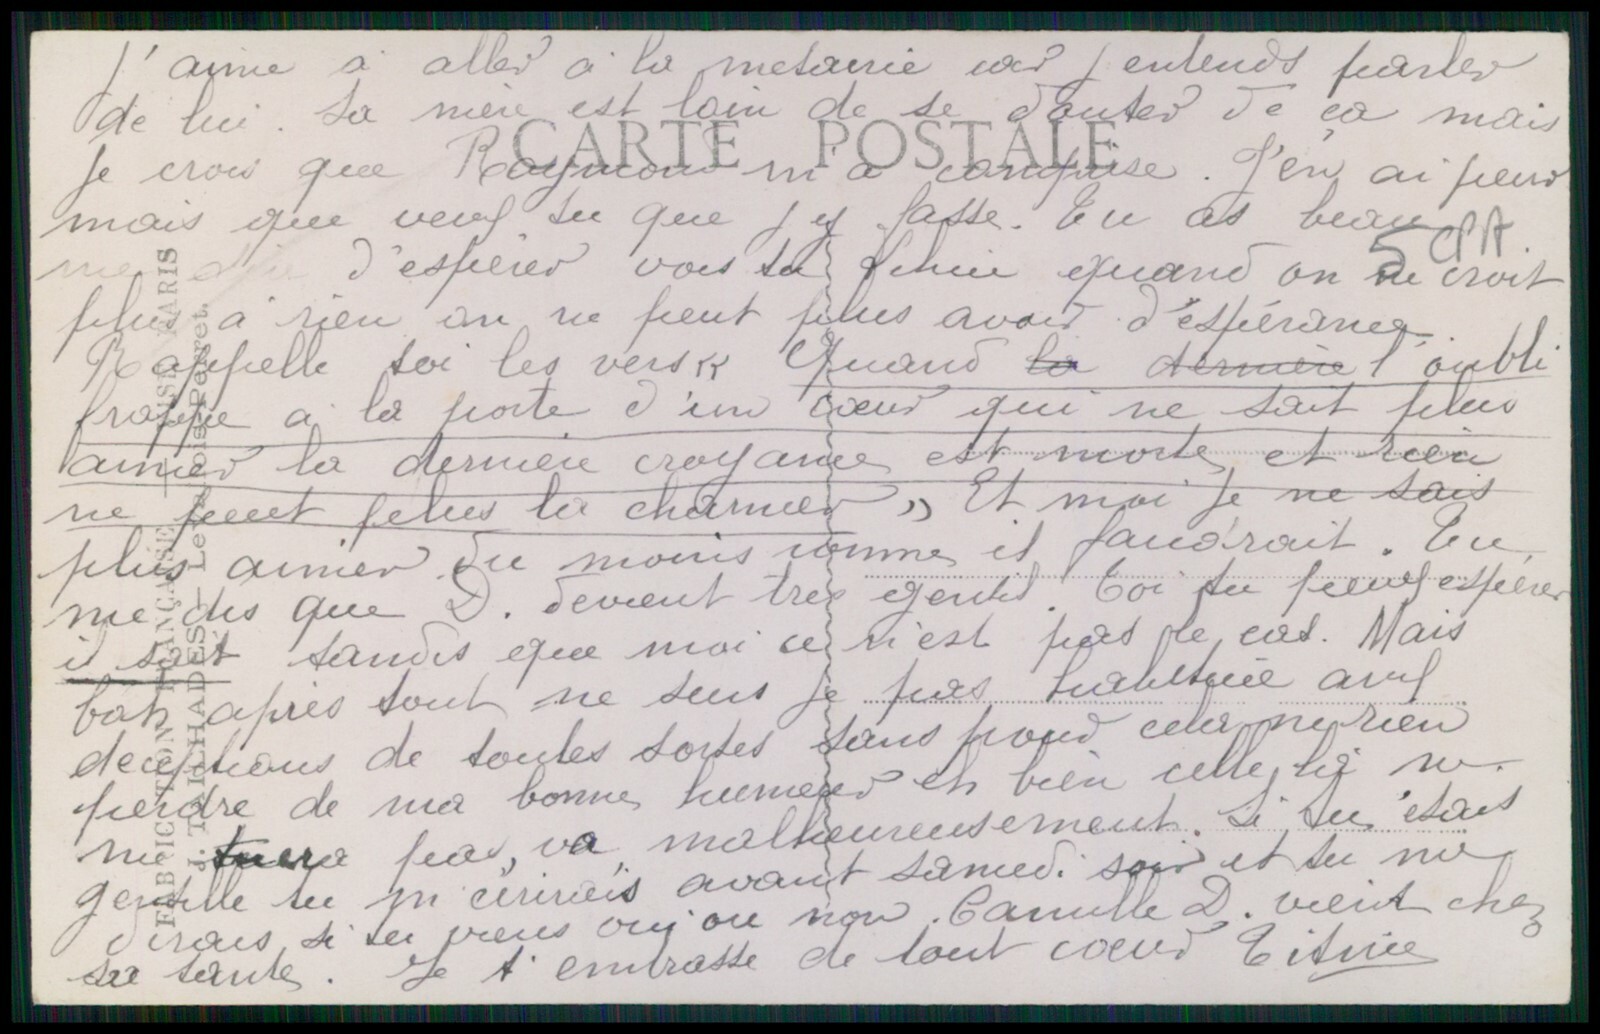 J'aime à aller à la metairie car j entends parler
de lui. Sa mère est loin de se douter de ça mais
CARTE POSTALE
je crois que Raymond m'a conquise. J'en ai peur
mais que veux tu que j y fasse. Tu as beau
5 CPA
me dire d'espérer vois tu quand on ne croit
plus à rien on ne peut plus avoir d'espérance
Rappelle toi les vers « Quand la dernière l'oubli
frappe à la porte d'un cœur qui ne sait plus
aimer la dernière croyance est morte et rien
ne peut plus la charmer » Et moi je ne sais
plus aimer du moins comme il faudrait. Tu
me dis que D. devient très gentil. Toi tu peux espérer
il sait tandis que moi ce n'est pas le cas. Mais
bah après tout ne suis je pas habituée aux
deceptions de toutes sortes sans pour cela ne rien
perdre de ma bonne humeur eh bien celle là ne
me tuera pas, va, malheureusement. Si tu étais
gentille tu m'écrirais avant samedi soir et tu me
dirais si tu viens oui ou non. Camille D. vient chez
sa tante. Je t'embrasse de tout cœur Titine
FABRICATION FRANÇAISE — PARIS
J. TAILHADES — Levallois-Perret.